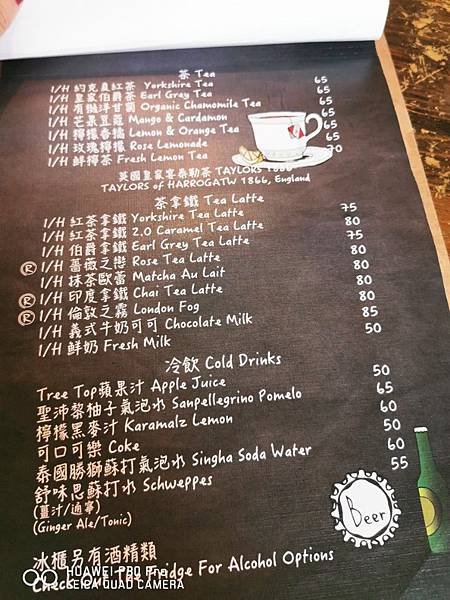 茶 Tea
I/H 約克夏紅茶 Yorkshire Tea 65
I/H 皇家伯爵茶 Earl Grey Tea 65
I/H 有機洋甘菊 Organic Chamomile Tea 65
I/H 芒果豆蔻 Mango & Cardamon 65
I/H 檸檬香橘 Lemon & Orange Tea 65
I/H 玫瑰檸檬 Rose Lemonade 65
I/H 鮮檸茶 Fresh Lemon Tea 70
英國皇家宴泰勒茶 TAYLORS 1886
TAYLORS of HARROGATW 1866, England
茶拿鐵 Tea Latte
I/H 紅茶拿鐵 Yorkshire Tea Latte 75
I/H 紅茶拿鐵 2.0 Caramel Tea Latte 80
I/H 伯爵拿鐵 Earl Grey Tea Latte 75
Ⓡ I/H 薔薇之戀 Rose Tea Latte 80
I/H 抹茶歐蕾 Matcha Au Lait 80
Ⓡ I/H 印度拿鐵 Chai Tea Latte 80
Ⓡ I/H 倫敦之霧 London Fog 80
I/H 義式牛奶可可 Chocolate Milk 85
I/H 鮮奶 Fresh Milk 50
冷飲 Cold Drinks
Tree Top蘋果汁 Apple Juice 50
聖沛黎柚子氣泡水 Sanpellegrino Pomelo 65
檸檬黑麥汁 Karamalz Lemon 60
可口可樂 Coke 50
泰國勝獅蘇打氣泡水 Singha Soda Water 60
舒味思蘇打水 Schweppes 55
(薑汁/通寧)
(Ginger Ale/Tonic)
Beer
冰櫃另有酒精類
Check Out The Fridge For Alcohol Options
HUAWEI P20 Pro
LEICA QUAD CAMERA